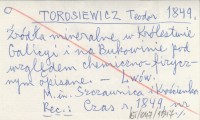 TOROSIEWICZ Teodor 1849.
Źródła mineralne w Królestwie
Galicyi i na Bukowinie pod
względem chemiczno-fizycz-
nym opisane. — Lwów.
M. in. Szczawnica i Krościenko
Rec.: Czas r. 1849, nr